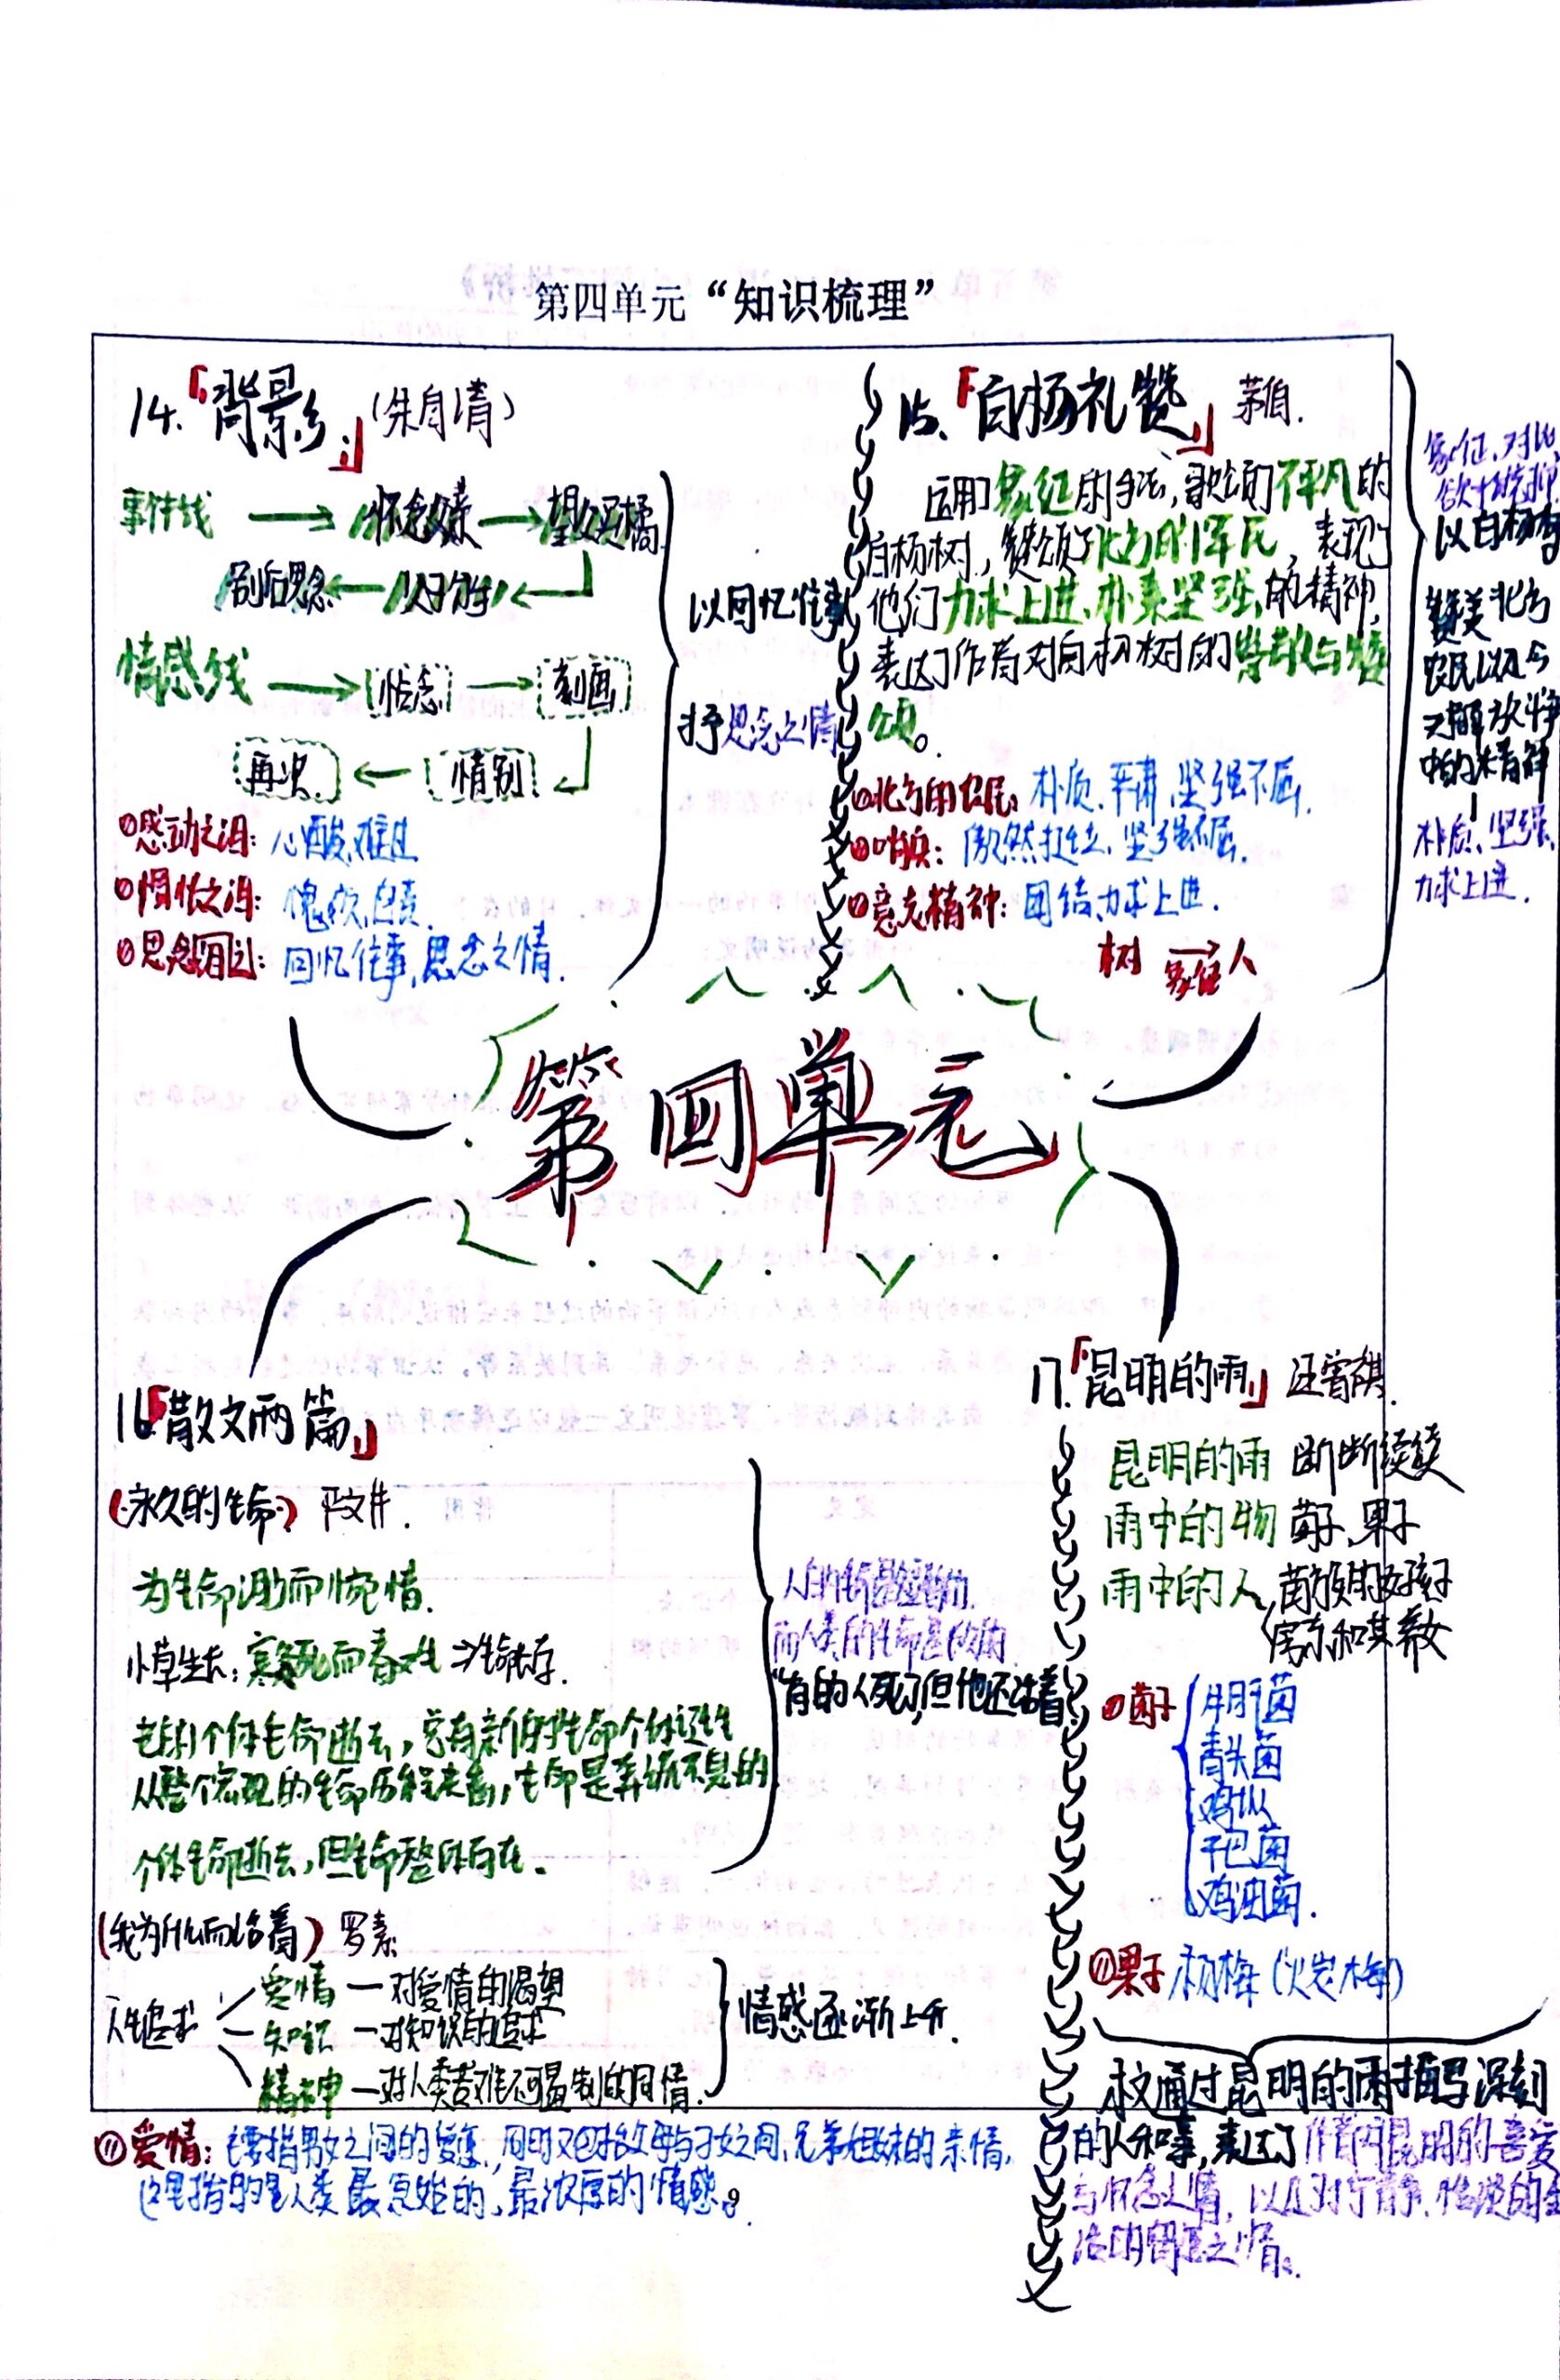 第四单元“知识梳理”
14.「背景」(朱自清)
事件线 → 怀念父亲 → 望父买橘
别后思念 ← 父子分手 ←
情感线 → 惦念 → 刻画
再忆 ← 惜别
①感动之泪：心酸,难过
②惆怅之泪：愧疚,自责.
③思念泪：回忆往事,思念之情.
以回忆往事
抒思念之情
15、「白杨礼赞」茅盾.
运用象征的手法，歌颂了不平凡的
白杨树，赞颂了北方的军民，表现了
他们力求上进、朴素坚强,的精神,
表达了作者对白杨树的崇敬与赞
颂。
①北方的农民：朴质、严肃、坚强不屈.
②哨兵：傲然挺立、坚强不屈.
③意志精神：团结,力求上进.
树 象征→ 人
象征、对比
欲扬先抑
以白杨树
赞美北方
农民以及
解放战争
中的精神
朴质、坚强、
力求上进.
第四单元
16「散文两篇」
(永久的生命) 严文井.
为生命凋零而惋惜.
小草生长：寒冬死而春又生
老的个体生命逝去，定有新的生命个体诞生
从整个宏观的生命历程来看，生命是奔流不息的
个体生命逝去，但生命整体存在.
人的生命是短暂的.
而人类的生命是
“有的人死了,但他还活着
(我为什么而活着) 罗素
人生追求
爱情 — 对爱情的渴望
知识 — 对知识的追求
精神 — 对人类苦难不可遏制的同情.
情感逐渐上升.
①爱情：主要指男女之间的爱恋,同时又包括父母与子女之间,兄弟姐妹的亲情,
这里指的是人类最原始的、最浓厚的情感。
17.「昆明的雨」汪曾祺.
昆明的雨 断断续续
雨中的物 菌子、果子
雨中的人 苗族的女孩子
房东和其养女
①菌子
牛肝菌
青头菌
鸡㙡
干巴菌
鸡油菌.
②果子 杨梅 (火炭梅)
本文通过昆明的雨描写深刻
的人和事,表达了作者对昆明的喜爱
与怀念之情，以及对宁静、恬淡的生
活的留恋之情。
9